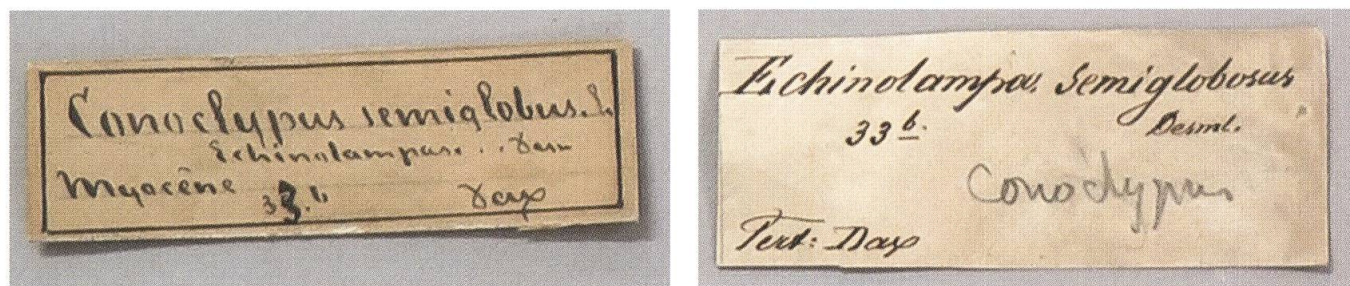 Conoclypus semiglobus. L
Echinolampas. . Desm
Myocène 33.b Dax
Echinolampas. Semiglobosus
33 b. Desml.
Conoclypus
Tert: Dax